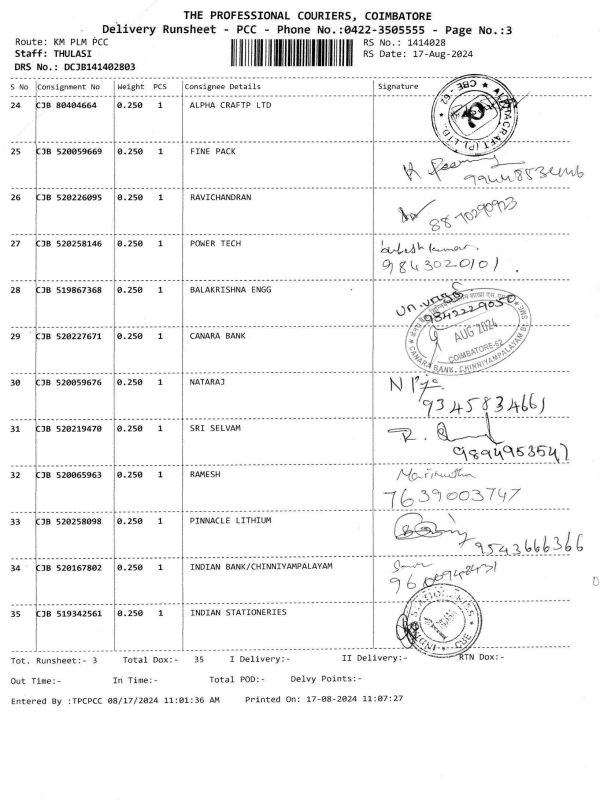 THE PROFESSIONAL COURIERS, COIMBATORE
Delivery Runsheet - PCC - Phone No.:0422-3505555 - Page No.:3
Route: KM PLM PCC RS No.: 1414028
Staff: THULASI RS Date: 17-Aug-2024
DRS No.: DCJB141402803
S No Consignment No Weight PCS Consignee Details Signature
24 CJB 80404664 0.250 1 ALPHA CRAFTP LTD
25 CJB 520059669 0.250 1 FINE PACK
26 CJB 520226095 0.250 1 RAVICHANDRAN
8870290923
27 CJB 520258146 0.250 1 POWER TECH
9843020101.
28 CJB 519867368 0.250 1 BALAKRISHNA ENGG
9842229050
29 CJB 520227671 0.250 1 CANARA BANK
AUG 2024
COIMBATORE-62
CANARA BANK, CHINNIYAMPALAYAM
30 CJB 520059676 0.250 1 NATARAJ
9345834661
31 CJB 520219470 0.250 1 SRI SELVAM
9894953547
32 CJB 520065963 0.250 1 RAMESH
7639003747
33 CJB 520258098 0.250 1 PINNACLE LITHIUM
9543666366
34 CJB 520167802 0.250 1 INDIAN BANK/CHINNIYAMPALAYAM
35 CJB 519342561 0.250 1 INDIAN STATIONERIES
Tot. Runsheet:- 3 Total Dox:- 35 I Delivery:- II Delivery:- RTN Dox:-
Out Time:- In Time:- Total POD:- Delvy Points:-
Entered By :TPCPCC 08/17/2024 11:01:36 AM Printed On: 17-08-2024 11:07:27